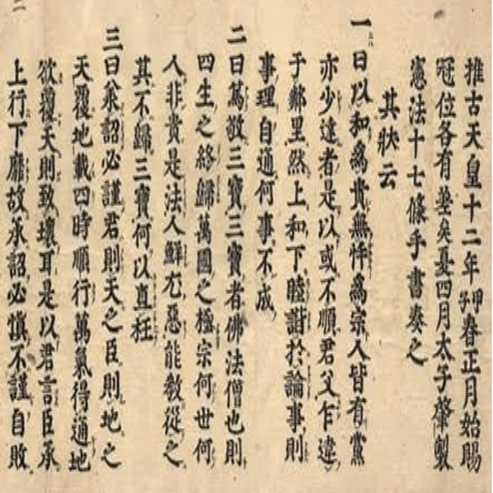 推古天皇十二年甲子春正月始賜
冠位各有差矣夏四月太子肇製
憲法十七條手書奏之
其狀云
一曰以和爲貴無忤爲宗人皆有黨
亦少達者是以或不順君父乍違
于鄰里然上和下睦諧於論事則
事理自通何事不成
二曰篤敬三寶三寶者佛法僧也則
四生之終歸萬國之極宗何世何
人非貴是法人鮮尤惡能教從之
其不歸三寶何以直枉
三曰承詔必謹君則天之臣則地之
天覆地載四時順行萬氣得通地
欲覆天則致壞耳是以君言臣承
上行下靡故承詔必慎不謹自敗